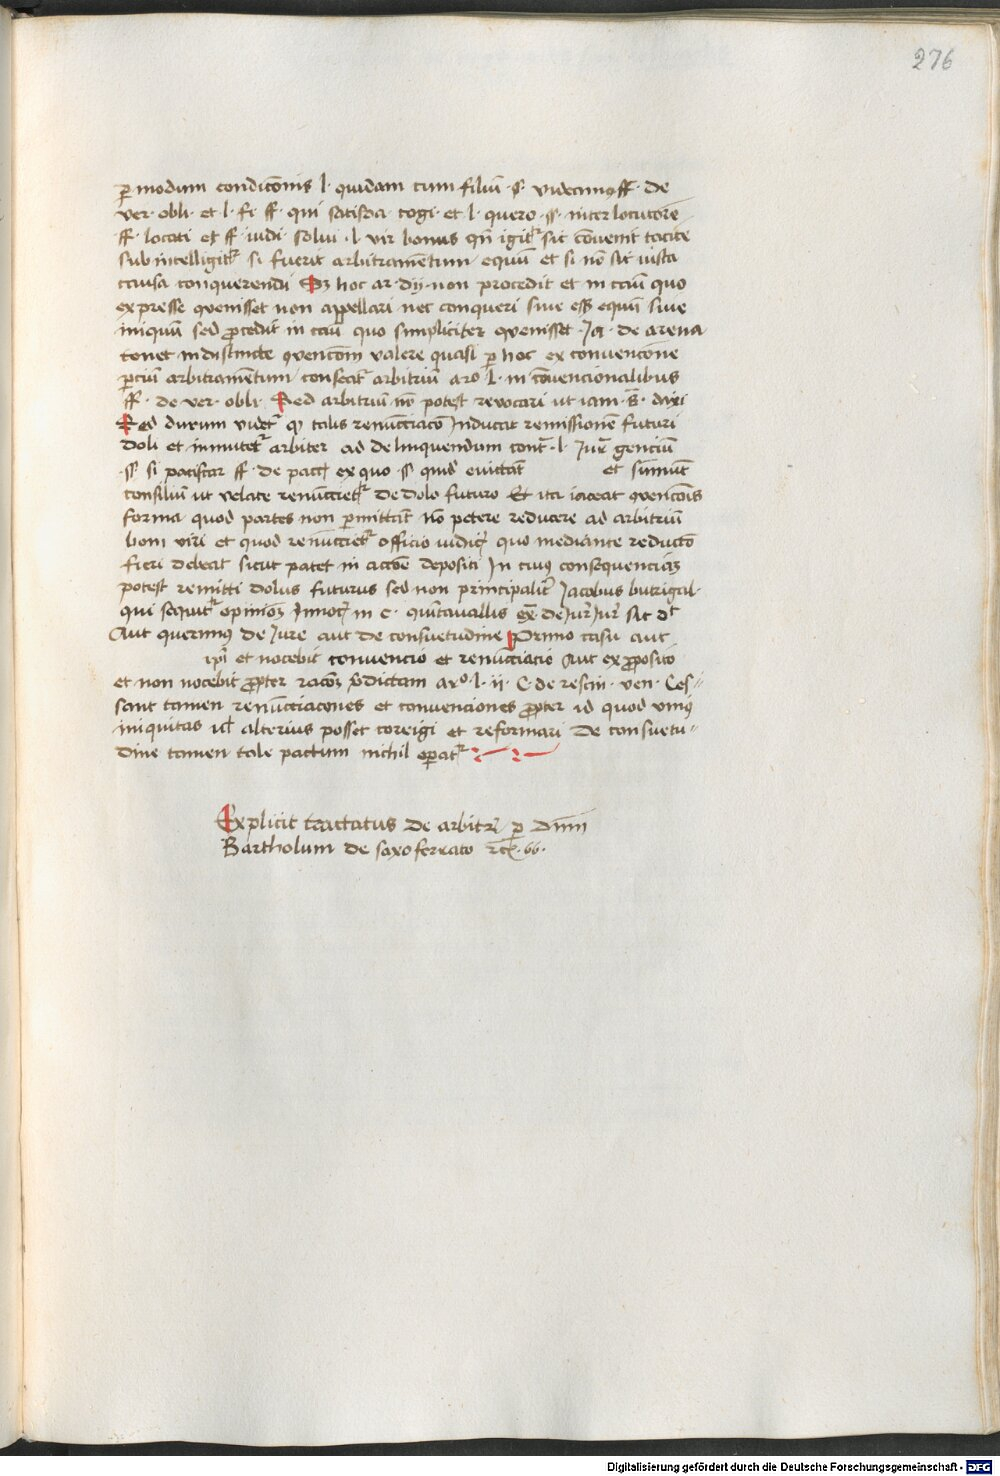 276
ꝑ modum condicōnis l· quidam cum filiū ·§· videamꝰ ff· de
ver· obli· et l· fi ff· qui satisda· cogi· et l· quero ·§· inter locatorē
ff· locati et ff· iudi· solui· l· vir bonus qn̄ igitʳ sic cōvenit tacite
sub intelligitʳ si fuerit arbitramētum equū et si nō sit iusta
causa conquerendi Sꝫ hoc ar· dij· non procedit et in cāu quo
expresse ꝯvenisset non appellari nec conqueri sive eēt equū sive
iniquū sed ꝓcedit in cāu quo simpliciter ꝯvenisset · Ja· de arena
tenet indistincte ꝯvencōm valere quasi ꝑ hoc ex convencione
ꝑciū arbitramētum consecatʳ arbitriū arᵒ l· in cōvencionalibus
ff· de ver· obli· Sed arbitriū nō potest revocari ut iam s̄· dixi
Sed durum videtʳ qꝫ talis renūcciacō Inducat remissionē futuri
doli et invitetʳ arbiter ad delinquendum contʳ· l· Jurʳ genciū
·§· si paciscar ff· de pact· ex quo ·§· quidē evittāt et sūmūt
consiliū ut velate renūccietʳ de dolo futuro Et ita iaceat ꝯvencōis
forma quod partes non ꝑmittāt nō petere reducere ad arbitriū
boni viri et quod renūccietʳ officio iudicꝭ quo mediante reductō
fieri debeat sicut patet in accōe depositi In cuiꝰ consequenciaꝫ
potest remitti dolus futurus sed non principaliter Jacobus butrigal·
qui sequitʳ opinioꝫ Innocꝭ in c· quintavallis ex̄· de Jurʳ Jurʳ sic dᵗ
Aut querimꝰ de Jure aut de consuetudine Primo casu aut
ipī et nocebit convencio et renūcciacio Aut ex ꝓposito
et non nocebit ꝓpter racōꝫ p̄dictam arᵒ· l· ii· C· de rescin· ven· Ces⸗
sant tamen renūcciacōnes et convenciones ꝓpter id quod uniꝰ
iniquitas ul̄ alterius posset coreigi et reformari De consuetu⸗
dine tamen tale pactum nichil oꝑatʳ
Explicit tractatus de arbitrʳ ꝑ Dnm̄
Bartholum de saxoferrato ꝛcꝭ· 66·
Digitalisierung gefördert durch die Deutsche Forschungsgemeinschaft - DFG